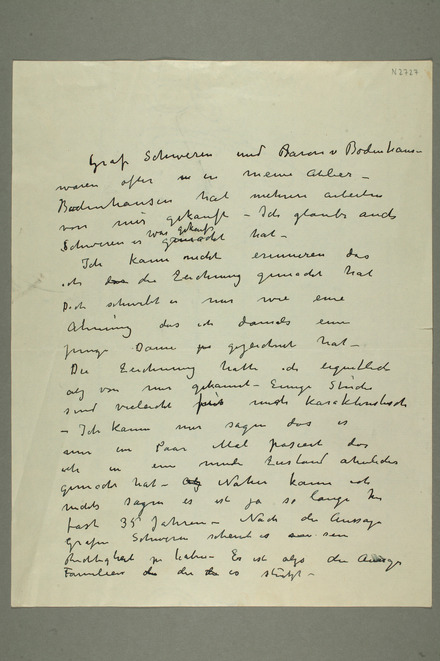 N 2727
Graf Schweren und Baron v Bodenhausen
waren ofter in meine Atlier –
Bodenhausen hat mehrere arbeiten
von mir gekauft – Ich glaube auch
Schweren es was gekauft hat –
Ich kann nicht erinneren das
ich die Zeichnung gemacht hat
Doch schwebt es mir wie eine
Ahnung das ich damals eine
junge Dame gezeichnet hat –
Die Zeichnung hatte ich eigentlich
als von mir gekannt – Einige Striche
sind vielleicht nicht karakteristisch
– Ich kann nur sagen das es
nur ein Paar Mal pasiert das
ich in ein Zustand ahnliches
gemacht hat – Naher kann ich
nichts sagen es ist ja so lange her
fast 35 Jahren – Nach die Aussage
Grafen Schweren scheint es sein
Richtigkeit zu haben – Es ist also die Aussage
Familien die es stützt –